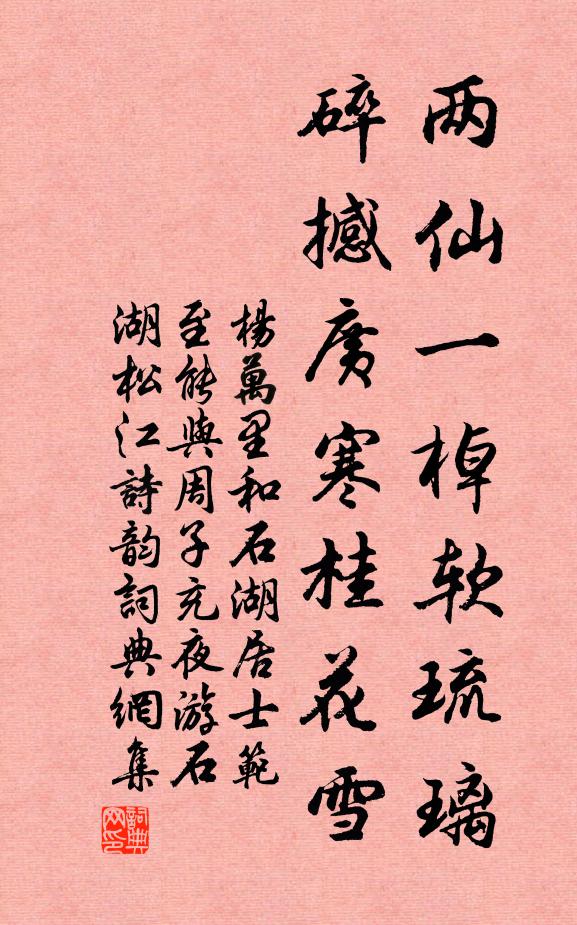 两仙一棹软琉璃
碎撼廣寒桂花雪
楊萬里和石湖居士範
至能與周子充夜游石
湖松江詩韵詞典網集
詞典
网印